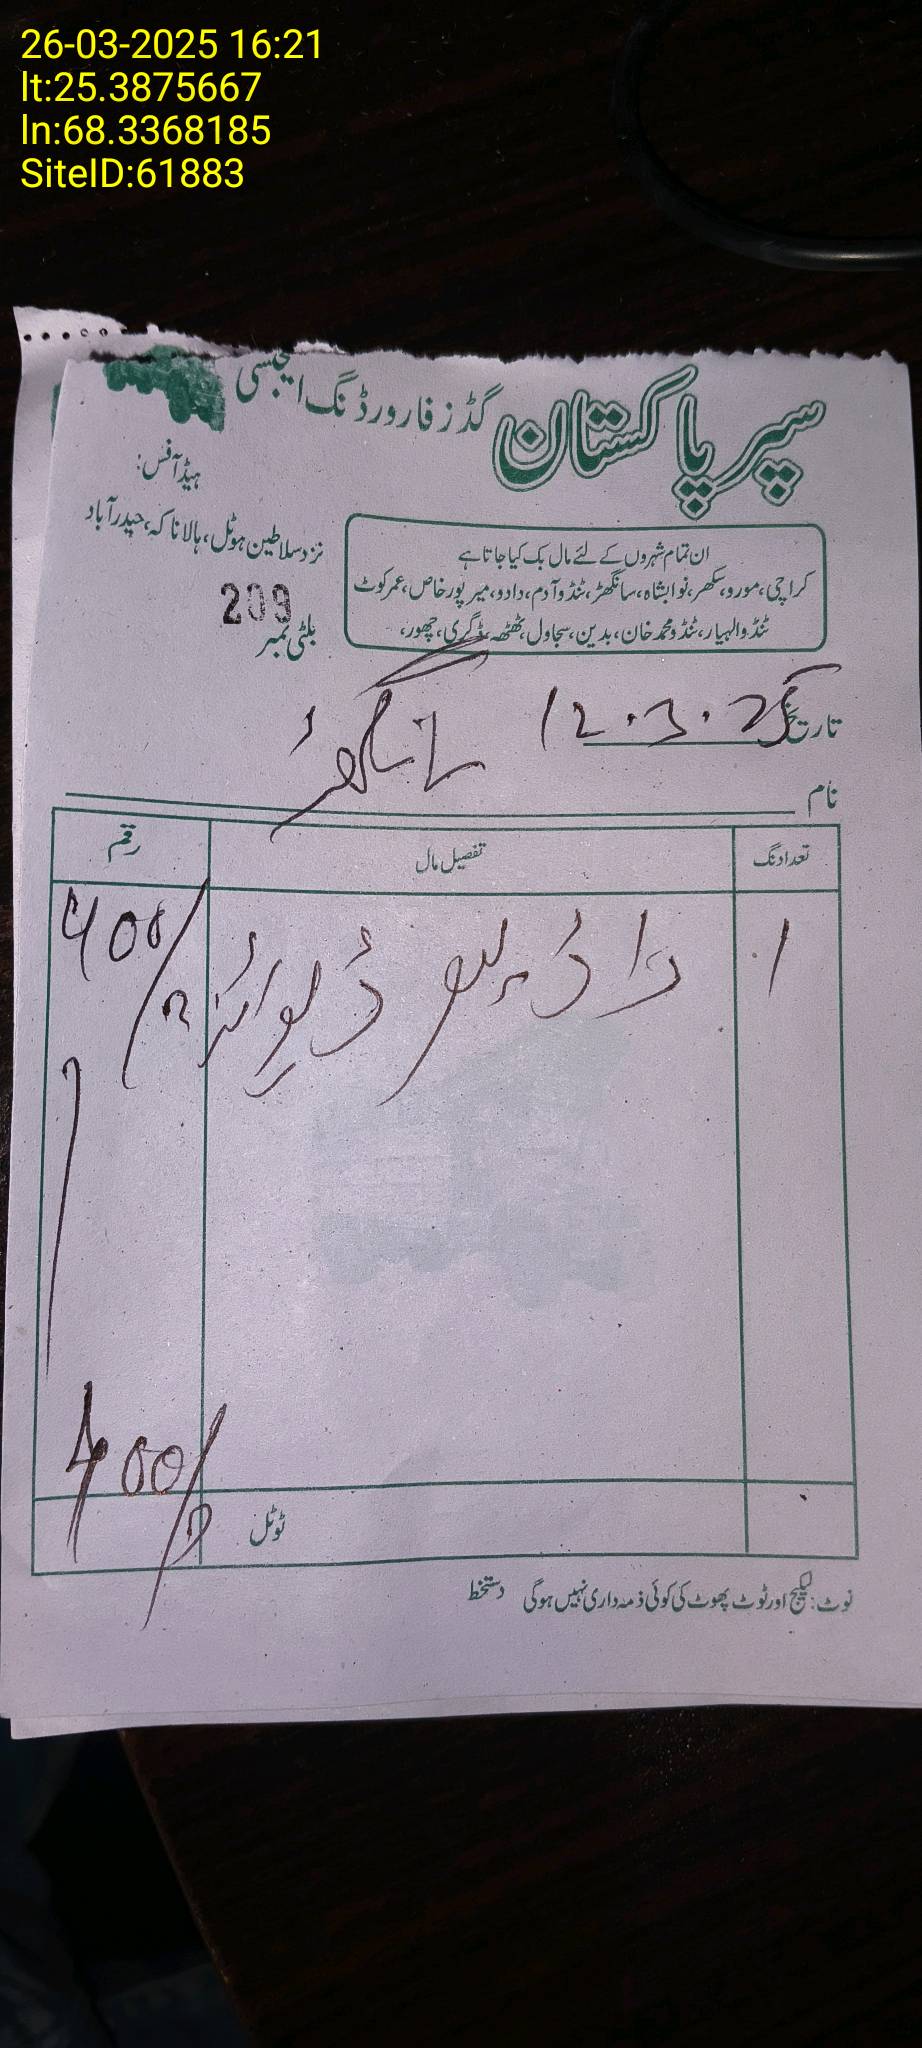 26-03-2025 16:21
lt:25.3875667
ln:68.3368185
SiteID:61883
سپر پاکستان گڈز فارورڈنگ ایجنسی
ہیڈ آفس:
نزد سلاطین ہوٹل، ہالا ناکہ، حیدرآباد
ان تمام شہروں کے لئے مال بک کیا جاتا ہے
کراچی، مورو، سکھر، نوابشاہ، سانگھڑ، ٹنڈوآدم، دادو، میرپورخاص، عمرکوٹ
ٹنڈوالہیار، ٹنڈومحمد خان، بدین، سجاول، ٹھٹھہ، ڈگری، چھور،
209
بلٹی نمبر
تاریخ 12.3.25
سانگھڑ
نام
تعداد نگ تفصیل مال رقم
1 400/
400/
ٹوٹل
نوٹ: لیکیج اور ٹوٹ پھوٹ کی کوئی ذمہ داری نہیں ہوگی دستخط